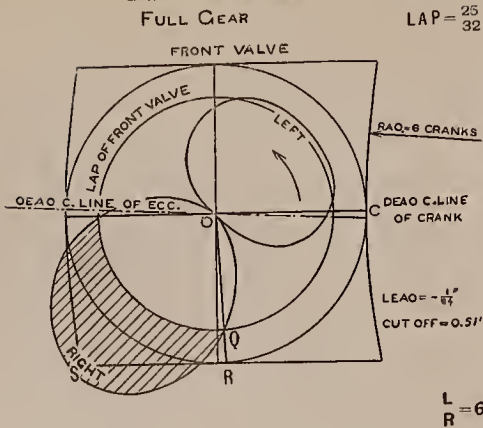 FULL GEAR
LAP = 25/32
FRONT VALVE
LAP OF FRONT VALVE
LEFT
RAD.=6 CRANKS
DEAD C. LINE OF ECC.
O
C
DEAD C. LINE
OF CRANK
LEAD = -1/64"
CUT OFF = 0.51'
RIGHT
Q
S
R
L/R = 6